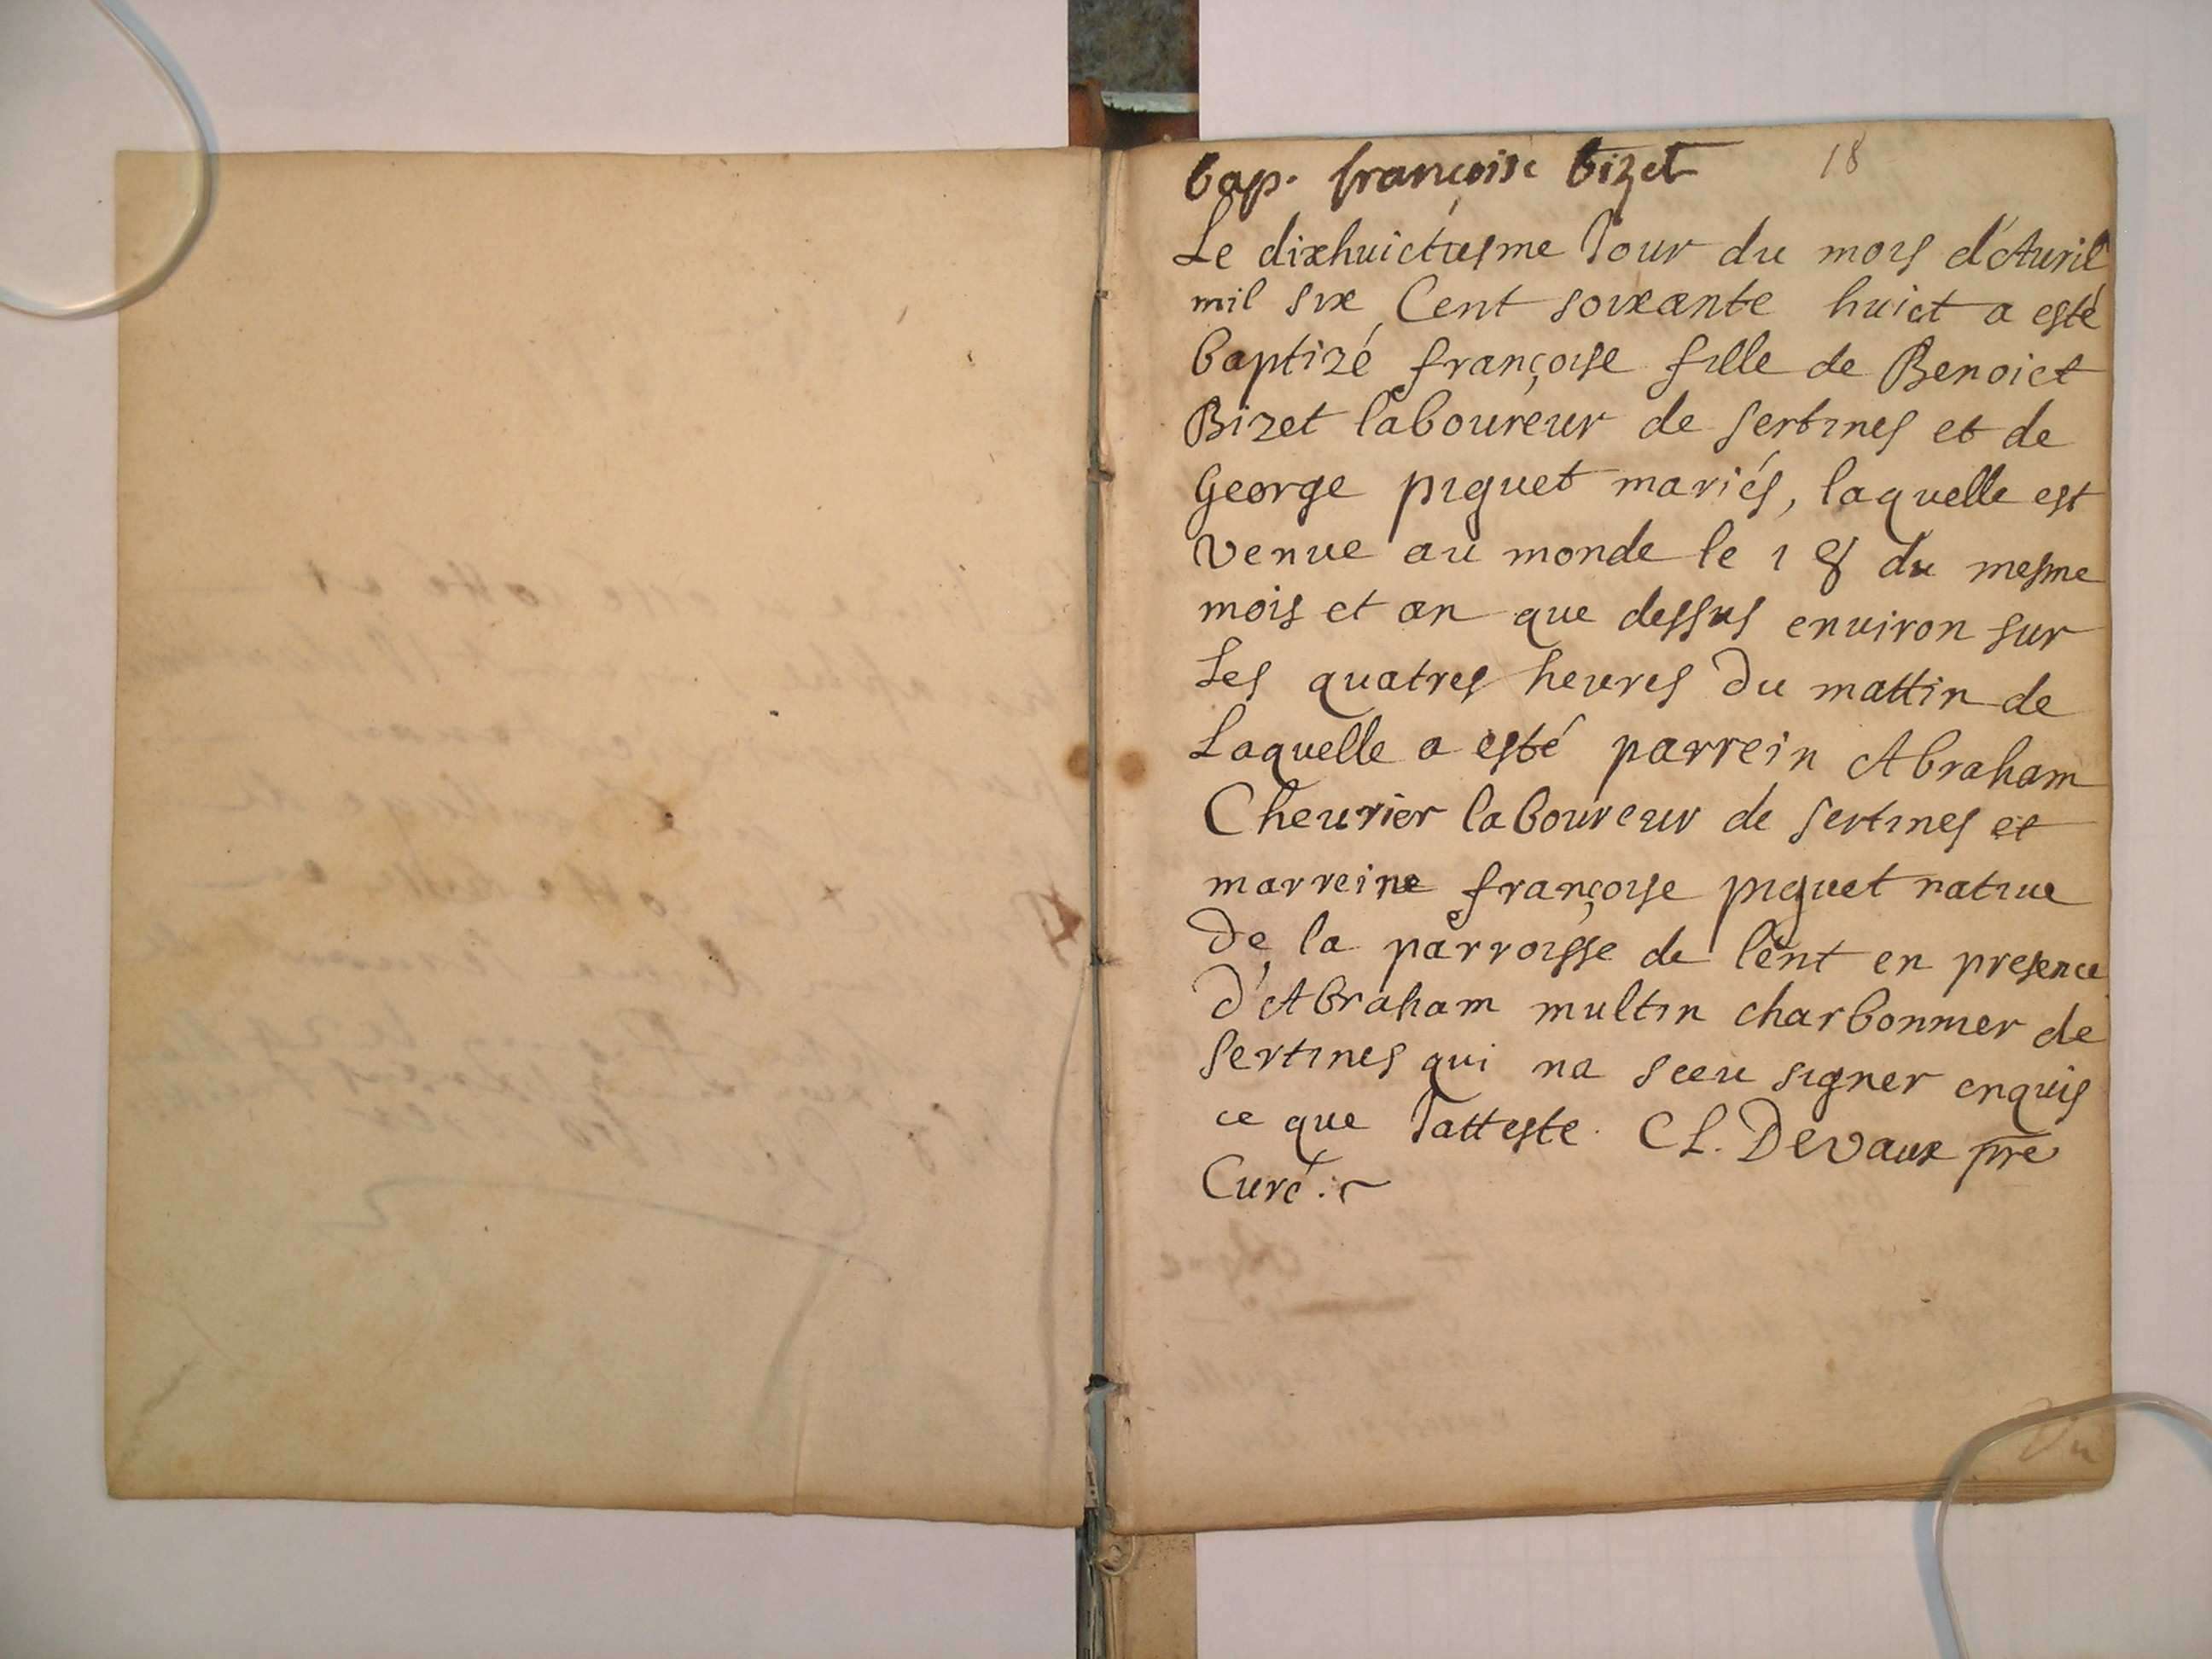 bap. françoise bizet 18
Le dixhuictiesme Jour du mois d'Auril
mil six Cent soixante huict a esté
baptizé françoise fille de Benoict
Bizet laboureur de sertines et de
George piguet mariés, laquelle est
venue au monde le 18 du mesme
mois et an que dessus enuiron sur
Les quatres heures du mattin de
Laquelle a esté parrein Abraham
Cheurier laboureur de sertines et
marreine françoise piguet natiue
De la parroisse de lent en presence
d'Abraham multin charbonnier de
sertines qui na sceu signer enquis
ce que Jatteste. CL. Devaux pre
Curé.